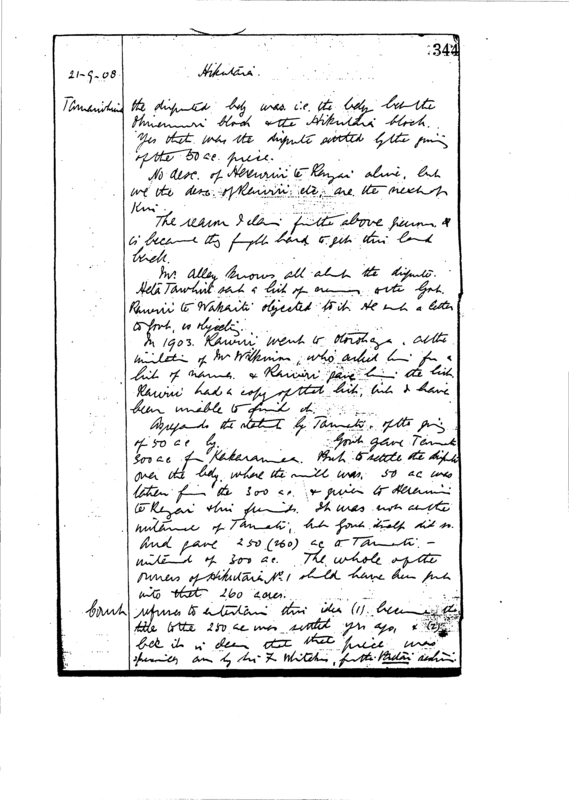 344
21-9-08 Hikutaia.
the disputed bdy was i.e. the bdy bet the
Ohinemuri block & the Hikutaia block.
Yes that was the dispute settled by the giving
of the 50 ac. piece.
No desc. of Herewini te Rangai alive, but
we the desc. of Rawiri etc, are the next of
Kin.
The reason I claim for the above persons
is because they fought hard to get this land
back.
Mr. Alley knows all abt the dispute.
Heta Tawhiti sent a list of to the Govt.
Rawiri te Wakaiti objected to it. He sent a letter
to Govt, objecting.
In 1903. Rawiri went to Otorohanga, at the
invitation of Mr Wilkinson, who asked him for a
list of names. & Rawiri gave him the list
Rawiri had a copy of that list, but I have
been unable to find it.
As regards the statmt by Tamati, of the giving
of 50 ac by Govt gave Tamati
300 ac for Kakaramea. But to settle the dispute
over the bdy, where the mill was, 50 ac was
taken from the 300 ac. & given to Herewini
te Rangai & his friends. It was not at the
instance of Tamati, but Govt itself did so.
And gave 250 (260) ac to Tamati. -
instead of 300 ac. The whole of the
owners of Hikutaia No. 1 should have been put
into that 260 acres.
Court refuses to entertain this idea (1). because the
title to the 250 ac was settled yrs ago, & (2).
bec it is clear that that piece was
by Mr F Whitaker, for the